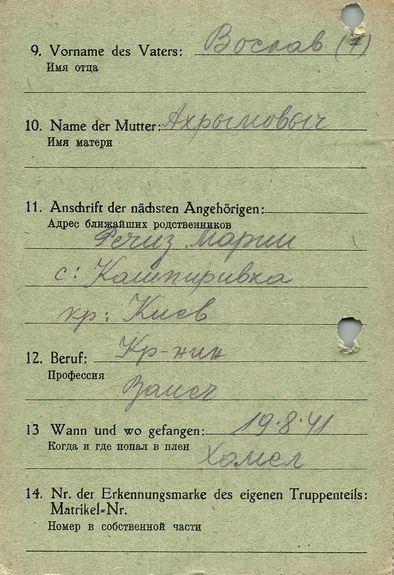 9. Vorname des Vaters: Вослав (7)
Имя отца
10. Name der Mutter: Ахрымовыч
Имя матери
11. Anschrift der nächsten Angehörigen:
Адрес ближайших родственников
Марии
с: Кашпиривка
кр: Киев
12. Beruf: Кр-нин
Профессия
13 Wann und wo gefangen: 19·8·41
Когда и где попал в плен
Хомел
14. Nr. der Erkennungsmarke des eigenen Truppenteils:
Matrikel-Nr.
Номер в собственной части